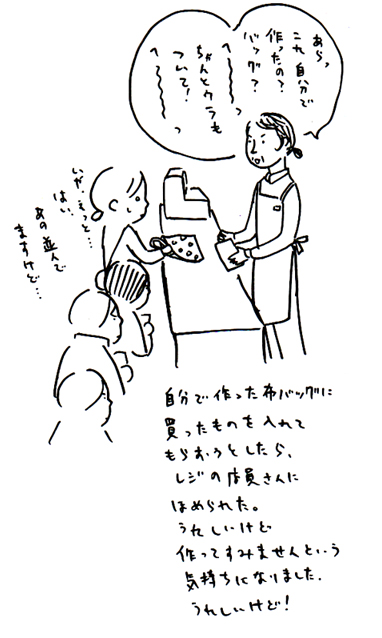 あら、
これ自分で
作ったの？
バッグ？
へ〜〜〜っ
ちゃんとウラも
ついて！
へ〜〜〜っ
いが、えっと…
はい、
あの並んで
ますけど…
自分で作った布バッグに
買ったものを入れて
もらおうとしたら、
レジの店員さんに
ほめられた。
うれしいけど
作ってすみませんという
気持ちになりました.
うれしいけど！